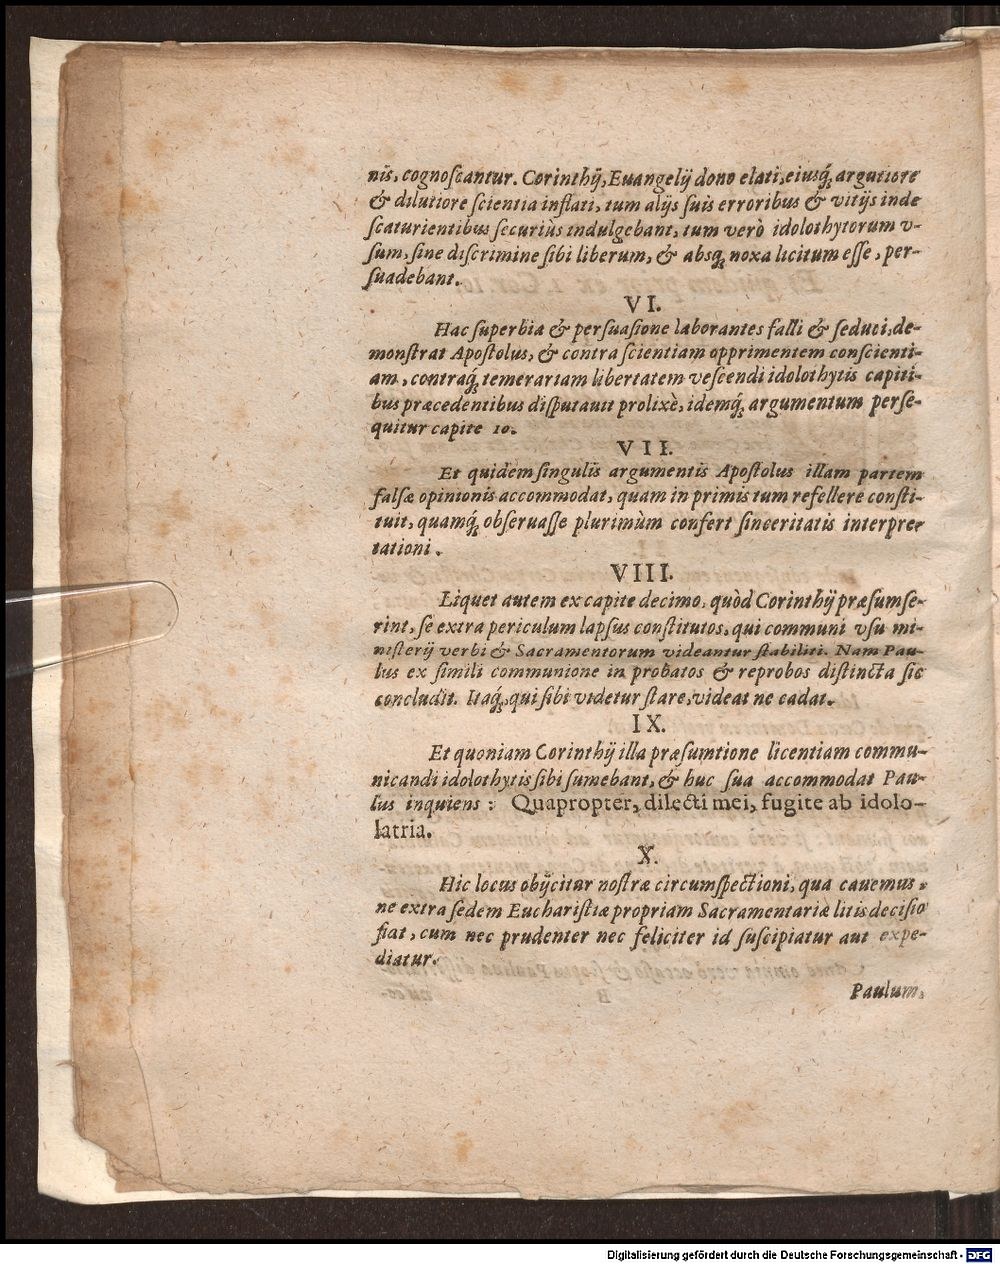 nis, cognoſcantur. Corinthij, Euangelij dono elati, eiusq́; argutiore
& dilutiore ſcientia inflati, tum alijs ſuis erroribus & vitijs inde
ſcaturientibus ſecuriùs indulgebant, tum verò idolothytorum v-
ſum, ſine diſcrimine ſibi liberum, & absq; noxa licitum eſſe, per-
ſuadebant.
VI.
Hac ſuperbia & perſuaſione laborantes falli & ſeduci, de-
monſtrat Apoſtolus, & contra ſcientiam opprimentem conſcienti-
am, contraq́; temerariam libertatem veſcendi idolothytis capiti-
bus præcedentibus diſputauit prolixè, idemq́; argumentum perſe-
quitur capite 10.
VII.
Et quidem ſingulis argumentis Apoſtolus illam partem
falſæ opinionis accommodat, quam in primis tum refellere conſti-
tuit, quamq́; obſeruaſſe plurimùm confert ſinceritatis interpre-
tationi.
VIII.
Liquet autem ex capite decimo, quòd Corinthij præſumſe-
rint, ſe extra periculum lapſus conſtitutos, qui communi vſu mi-
niſterij verbi & Sacramentorum videantur ſtabiliti. Nam Pau-
lus ex ſimili communione in probatos & reprobos diſtincta ſic
concludit. Itaq́;, qui ſibi videtur ſtare, videat ne cadat.
IX.
Et quoniam Corinthij illa præſumtione licentiam commu-
nicandi idolothytis ſibi ſumebant, & huc ſua accommodat Pau-
lus inquiens: Quapropter, dilecti mei, fugite ab idolo-
latria.
X.
Hic locus obijcitur noſtræ circumſpectioni, qua cauemus,
ne extra ſedem Euchariſtiæ propriam Sacramentariæ litis deciſio
fiat, cum nec prudenter nec feliciter id ſuſcipiatur aut expe-
diatur.
Paulum,
Digitalisierung gefördert durch die Deutsche Forschungsgemeinschaft - DFG